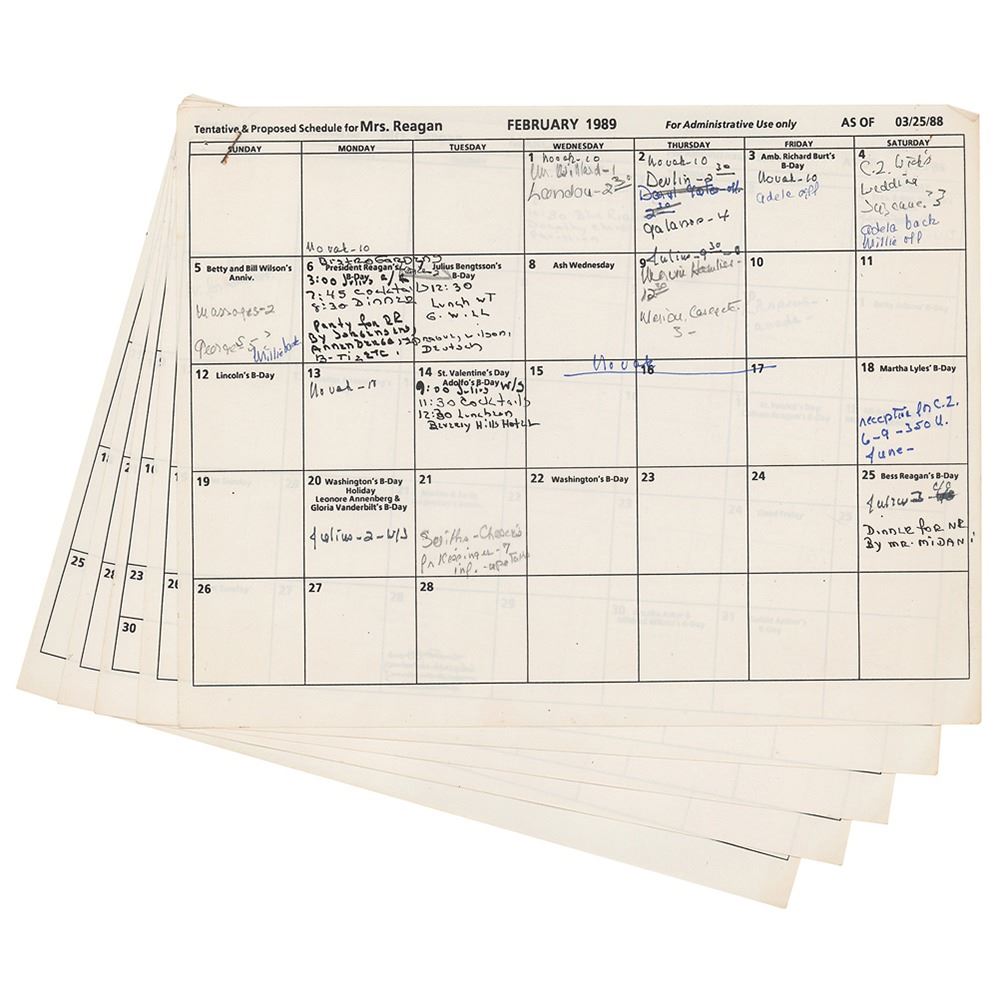 Tentative & Proposed Schedule for Mrs. Reagan FEBRUARY 1989 For Administrative Use only AS OF 03/25/88
SUNDAY MONDAY TUESDAY WEDNESDAY THURSDAY FRIDAY SATURDAY
1 Novak-10
Mr. Willard-1
London-2 30
2 Novak-10
Devlin-2 30
2 30
Galanos-4
3 Amb. Richard Burt's
B-Day
Novak-10
adela off
4
C.Z. Wick's
Wedding
3
adela back
Millie off
5 Betty and Bill Wilson's
Anniv.
Massages-2
George's 5
Millie back
Novak-10
6 President Reagan's
B-Day
3:00 Julius
7:45 Cocktails
8:30 Dinner
Party for RR
By Jorgensens,
Annenbergs,
Julius Bengtsson's
B-Day
12:30
Lunch WT
G. Will
Wilson,
Deutsch
8 Ash Wednesday
Julius-9 30
9
12 30
3-
10
11
12 Lincoln's B-Day
13
Novak-11
14 St. Valentine's Day
Adolfo's B-Day
9:00 Julius W/S
11:30 Cocktails
12:30 Luncheon
Beverly Hills Hotel
15
Novak
16
17
18 Martha Lyles' B-Day
reception for C.Z.
6-9-350 U.
June-
19
20 Washington's B-Day
Holiday
Leonore Annenberg &
Gloria Vanderbilt's B-Day
Julius-2-W/S
21
Smiths-Chasen's
Kissinger-7
inf.-upstairs
22 Washington's B-Day
23
24
25 Bess Reagan's B-Day
Julius 3-
Dinner for NR
By Mr. Midani
26
27
28
25
23
30